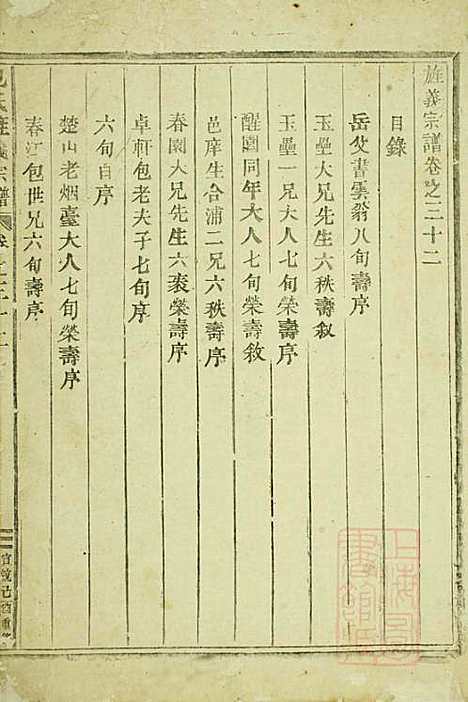 旌義宗譜卷之三十二
目錄
岳父書雲翁八旬壽序
玉壘大兄先生六秩壽敘
玉壘一兄大人七旬榮壽序
醒園同年大人七旬榮壽敘
邑庠生合浦二兄六秩壽序
春園大兄先生六袠榮壽序
卓軒包老夫子七旬序
六旬自序
楚山老烟臺大人七旬榮壽序
春江包世兄六旬壽序
包氏旌義宗譜
卷之三十二
宣統己酉重修